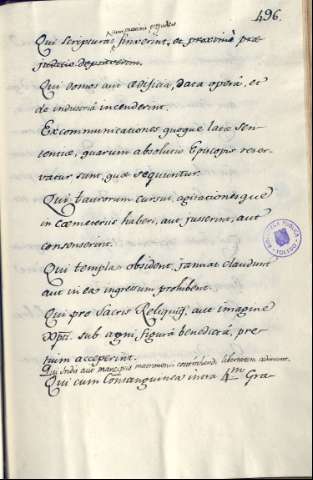 496.
Qui scripturas finxerint, et proximè præ
Qui domos aut ædificia, data operâ, et
de industriâ incenderint.
Excommunicationes quoque latæ Sen-
tentiæ, quarum absolutio Episcopis reser-
vatæ sunt, quæ sequuntur.
Qui taurorum cursus, agitationesque
in Cœmeteriis haberi, aut jusserint, aut
consenserint.
Qui templa obsident, januas claudunt
aut vi ex ingressum prohibent.
Qui pro Sacris Reliquiis, aut imagine
Xpti. sub agni figurâ benedictâ, pre-
tium acceperint.
Qui Indis aut mancipiis matrimonii contrahendi libertatem
Qui cum Consanguinea intra 4.m Gra-